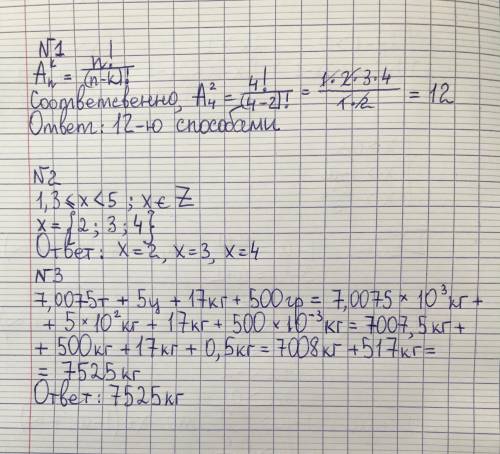 №1
Aₙᵏ = n! / (n-k)!
Соотвественно, A₄² = 4! / (4-2)! = 1·2·3·4 / 1·2 = 12
Ответ: 12-ю способами
№2
1,3 ⩽ x < 5 ; x ∈ Z
x = {2 ; 3 ; 4}
Ответ: x = 2, x = 3, x = 4
№3
7,0075т + 5ц + 17кг + 500гр = 7,0075 × 10³кг +
+ 5 × 10²кг + 17кг + 500 × 10⁻³кг = 7007,5кг +
+ 500кг + 17кг + 0,5кг = 7008кг + 517кг =
= 7525кг
Ответ: 7525кг